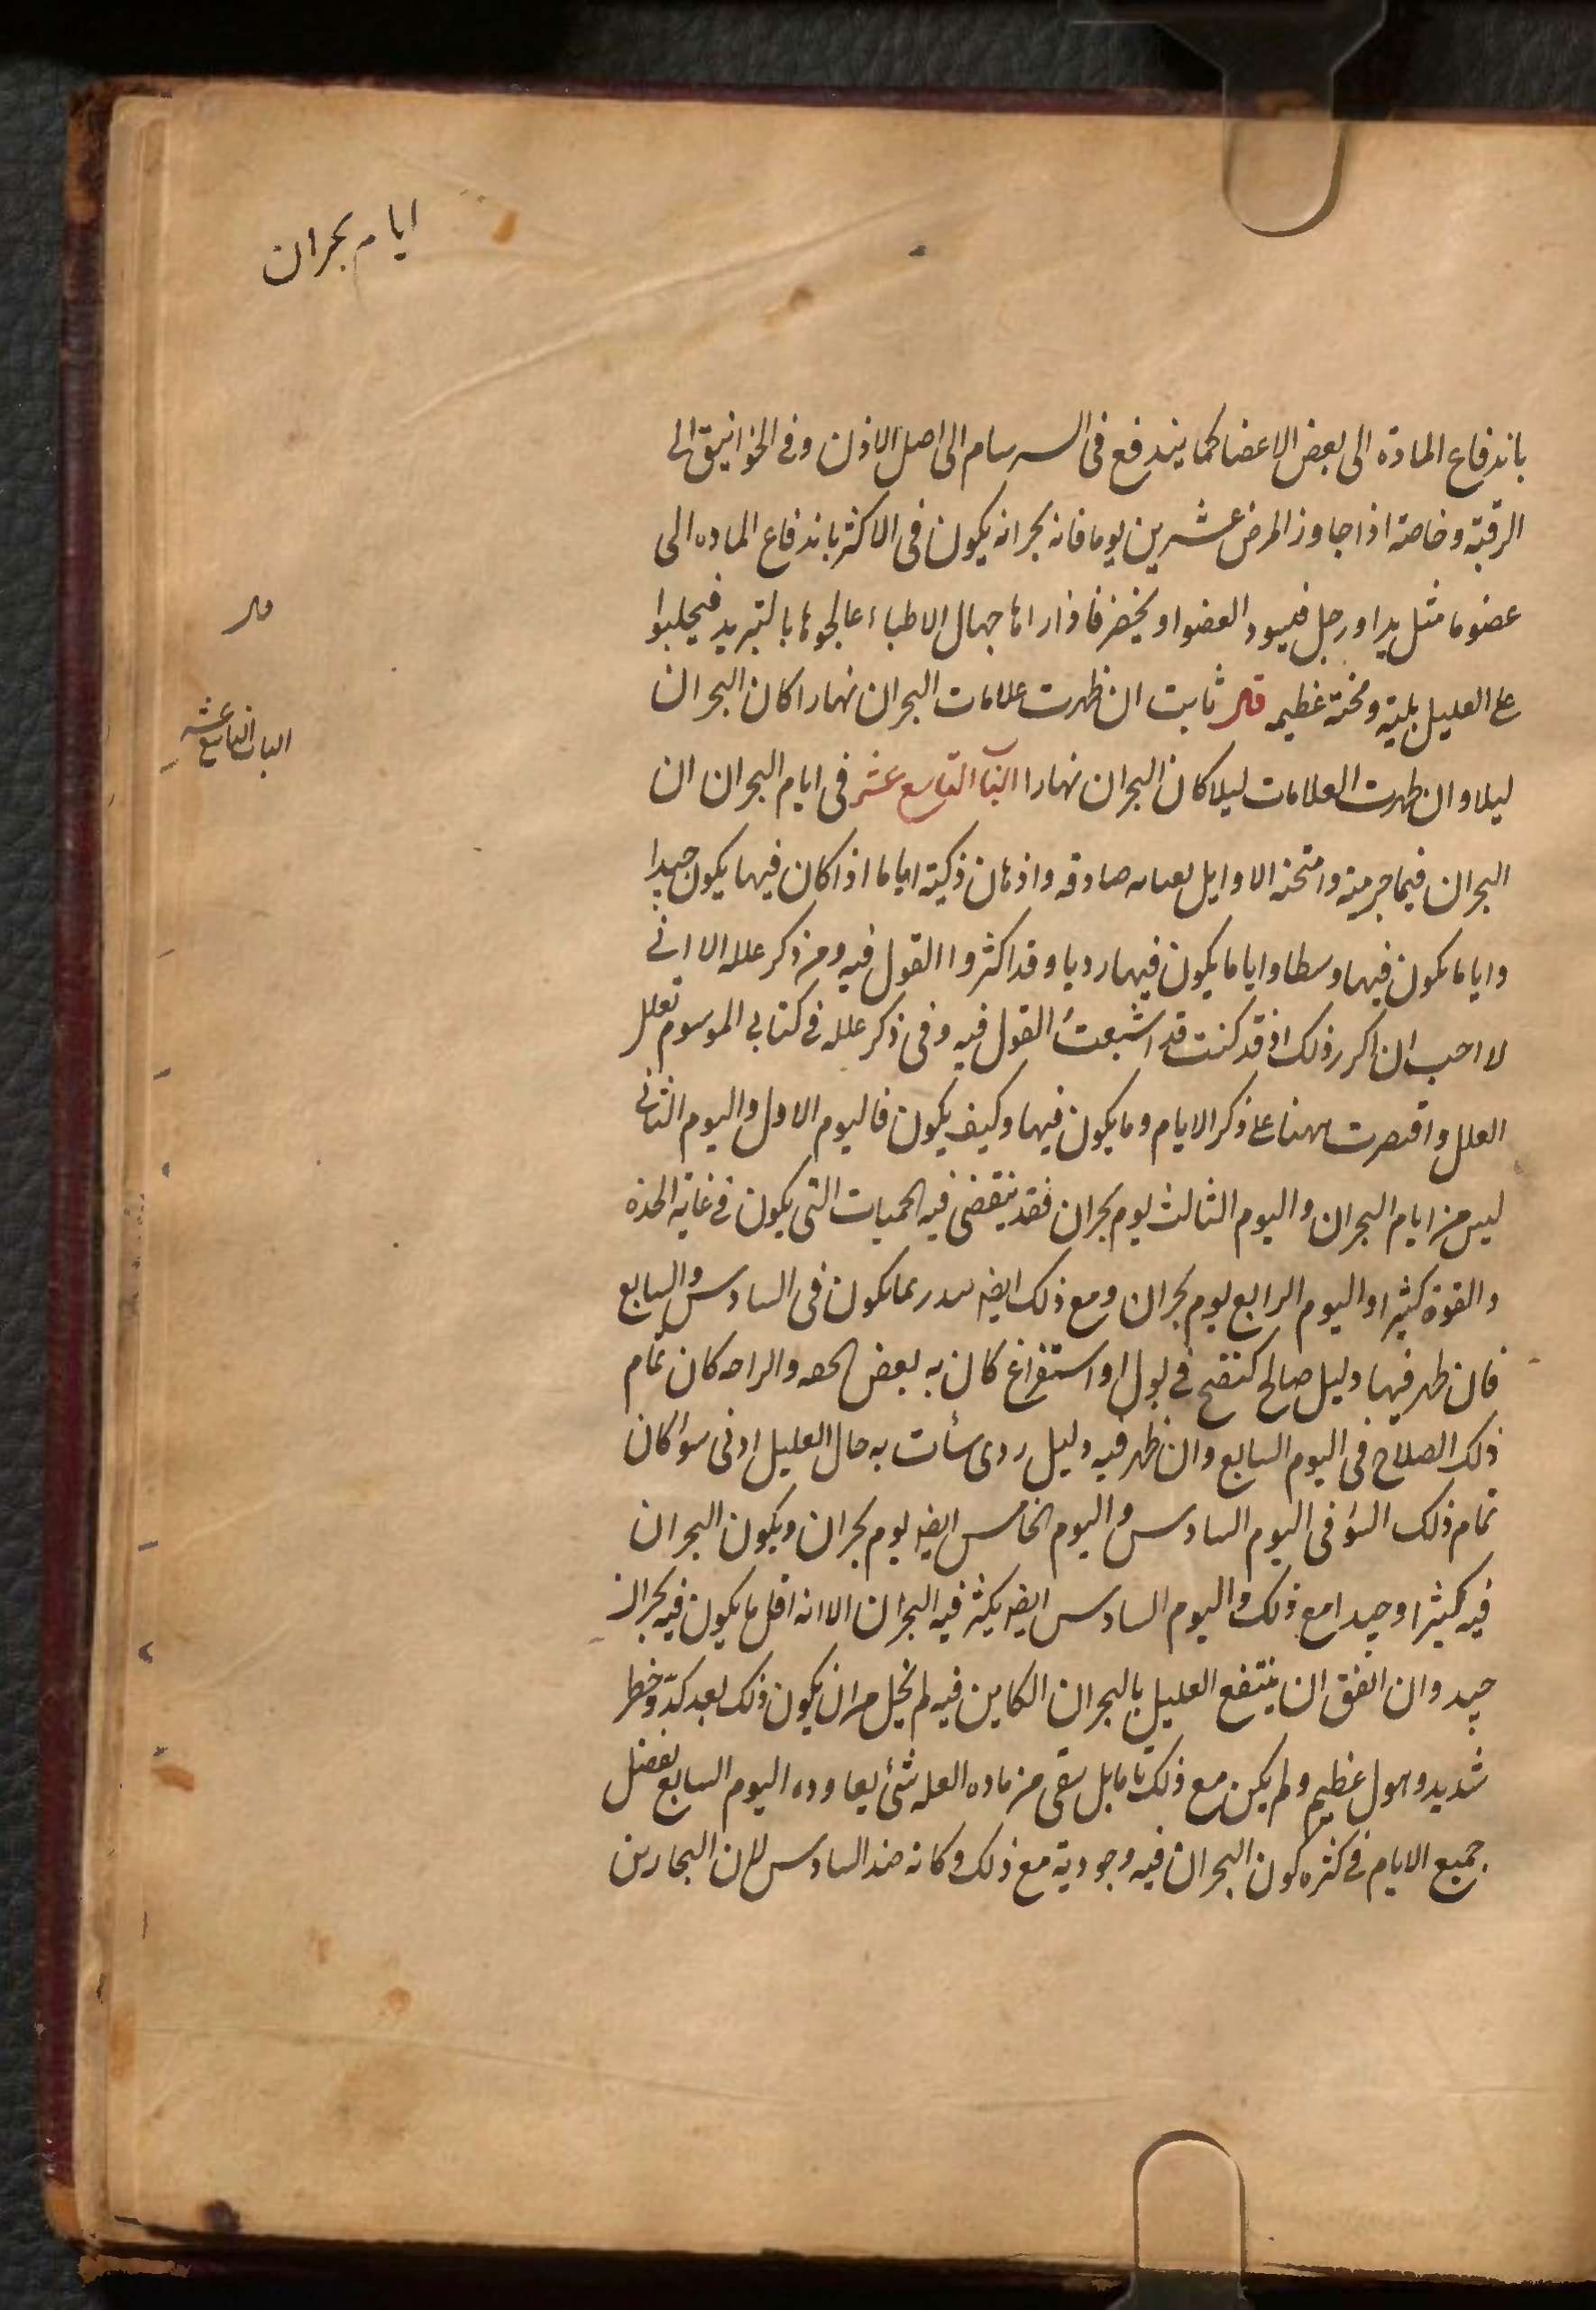 ايام بحران
باندفاع المادة الى بعض الاعضا كما يندفع فى السرسام الى اصل الاذن وفى الخوانيق الى
الرقبة وخاصة اذا جاوز المرض عشرين يوما فانه بحرانه يكون فى الاكثر باندفاع الماده الى
عضو ما مثل يد او رجل فيسود العضو او يخضر فاذا راها جهال الاطباء عالجوها بالتبريد فيجلبوا
قال
على العليل بلية ومحنة عظيمه قال ثابت ان ظهرت علامات البحران نهارا كان البحران
الباب التاسع عشر
ليلا وان ظهرت العلامات ليلا كان البحران نهارا الباب التاسع عشر فى ايام البحران ان
البحران فيما جربته وامتحنه الاوايل صادقه واذهان ذكية اياما اذا كان فيها يكون جيدا
واياما يكون فيها وسطا واياما يكون فيها رديا وقد اكثروا القول فيه ومن ذكر علله الا انى
لا احب ان اكرر ذلك اذ قد كنت قد اشبعت القول فيه وفى ذكر علله فى كتابى الموسوم بعلل
العلل واقتصرت ههنا على ذكر الايام وما يكون فيها وكيف يكون فاليوم الاول واليوم الثانى
ليس من ايام البحران واليوم الثالث يوم بحران فقد ينقضى فيه الحميات التى يكون فى غاية الحدة
والقوة كثيرا واليوم الرابع يوم بحران ومع ذلك ايضا بما يكون فى السادس والسابع
فان ظهر فيها دليل صالح كنضج فى بول او استفراغ كان به بعض الخفه والراحه كان تمام
ذلك الصلاح فى اليوم السابع وان ظهر فيه دليل ردى سأت به حال العليل ادنى سوأ كان
تمام ذلك السؤ فى اليوم السادس واليوم الخامس ايضا يوم بحران ويكون البحران
فيه كثيرا وجيدا مع ذلك واليوم السادس ايضا يكثر فيه البحران الا انه اقل ما يكون فيه بحران
جيد وان اتفق ان ينتفع العليل بالبحران الكاين فيه لم يخل من ان يكون ذلك بعد كد وخطر
شديد وهول عظيم ولم يكن مع ذلك تاما بل يبقى من ماده العله شئ يعاوده اليوم السابع يفضل
جميع الايام فى كثره كون البحران فيه وجودته مع ذلك وكانه ضد السادس لان البحارين